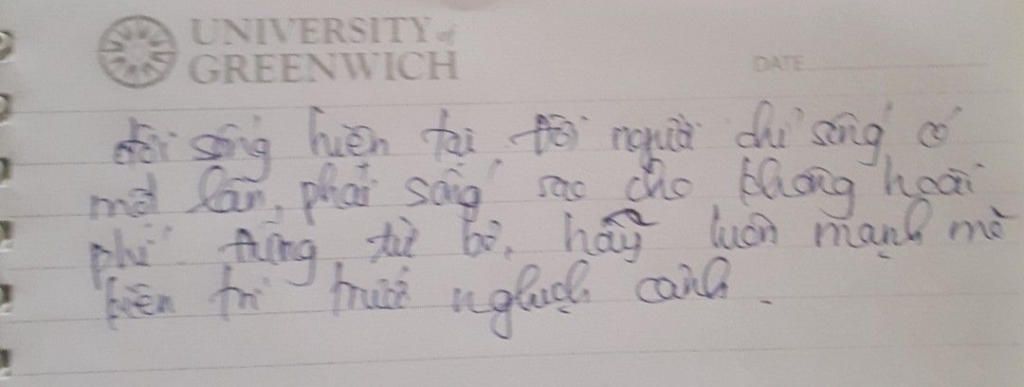 UNIVERSITY of
GREENWICH
DATE
đời sống hiện tại, đời người chỉ sống có
một lần, phải sống sao cho không hoài
phí. đừng từ bỏ, hãy luôn mạnh mẽ
kiên trì trước nghịch cảnh.